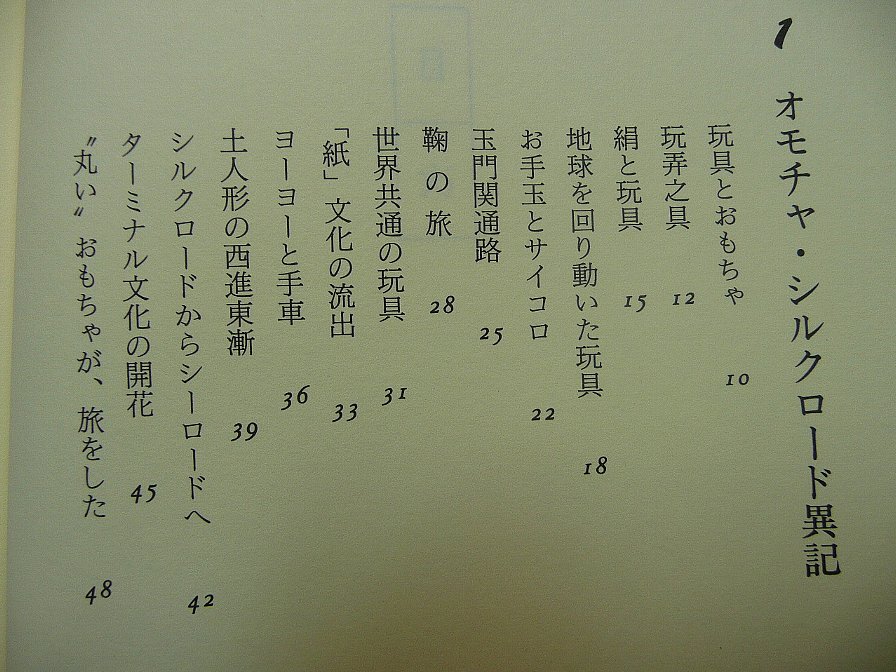 1
オモチャ・シルクロード異記
玩具とおもちゃ 10
玩弄之具 12
絹と玩具 15
地球を回り動いた玩具 18
お手玉とサイコロ 22
玉門関通路 25
鞠の旅 28
世界共通の玩具 31
「紙」文化の流出 33
ヨーヨーと手車 36
土人形の西進東漸 39
シルクロードからシーロードへ 42
ターミナル文化の開花 45
〝丸い〟おもちゃが、旅をした 48